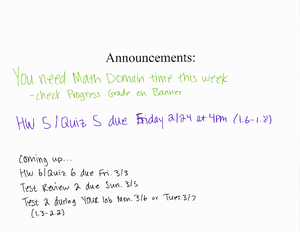 Announcements:
You need Math Domain time this week
- check Progress Grade on Banner
HW 5/Quiz 5 due Friday 2/24 at 4pm (1.6-1.8)
Coming up...
HW 6/Quiz 6 due Fri. 3/3
Test Review 2 due Sun. 3/5
Test 2 during your lab Mon. 3/6 or Tues. 3/7
(1.3-2.2)